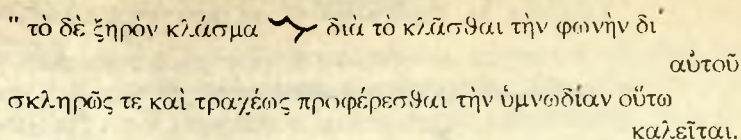 " τὸ δὲ ξηρὸν κλάσμα διὰ τὸ κλᾶσθαι τὴν φωνὴν δι'
αὐτοῦ
σκληρῶς τε καὶ τραχέως προφέρεσθαι τὴν ὑμνωδίαν οὕτω
καλεῖται.